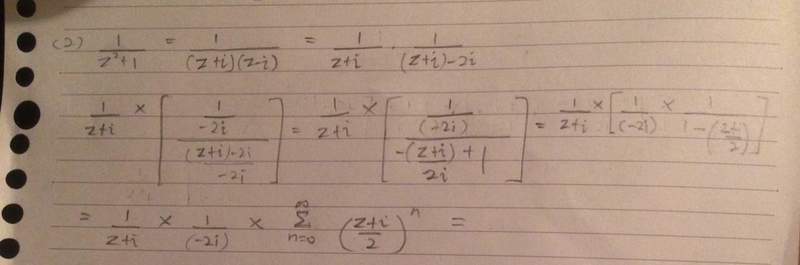 (2) 1/(z²+1) = 1/((z+i)(z-i)) = 1/(z+i) · 1/((z+i)-2i)
1/(z+i) × [ (1/(-2i)) / (((z+i)-2i)/(-2i)) ] = 1/(z+i) × [ (1/(-2i)) / (-(z+i)/(2i) + 1) ] = 1/(z+i) × [ 1/(-2i) × 1/(1-((z+i)/2)) ]
= 1/(z+i) × 1/(-2i) × Σ_{n=0}^{∞} ((z+i)/2)^n =